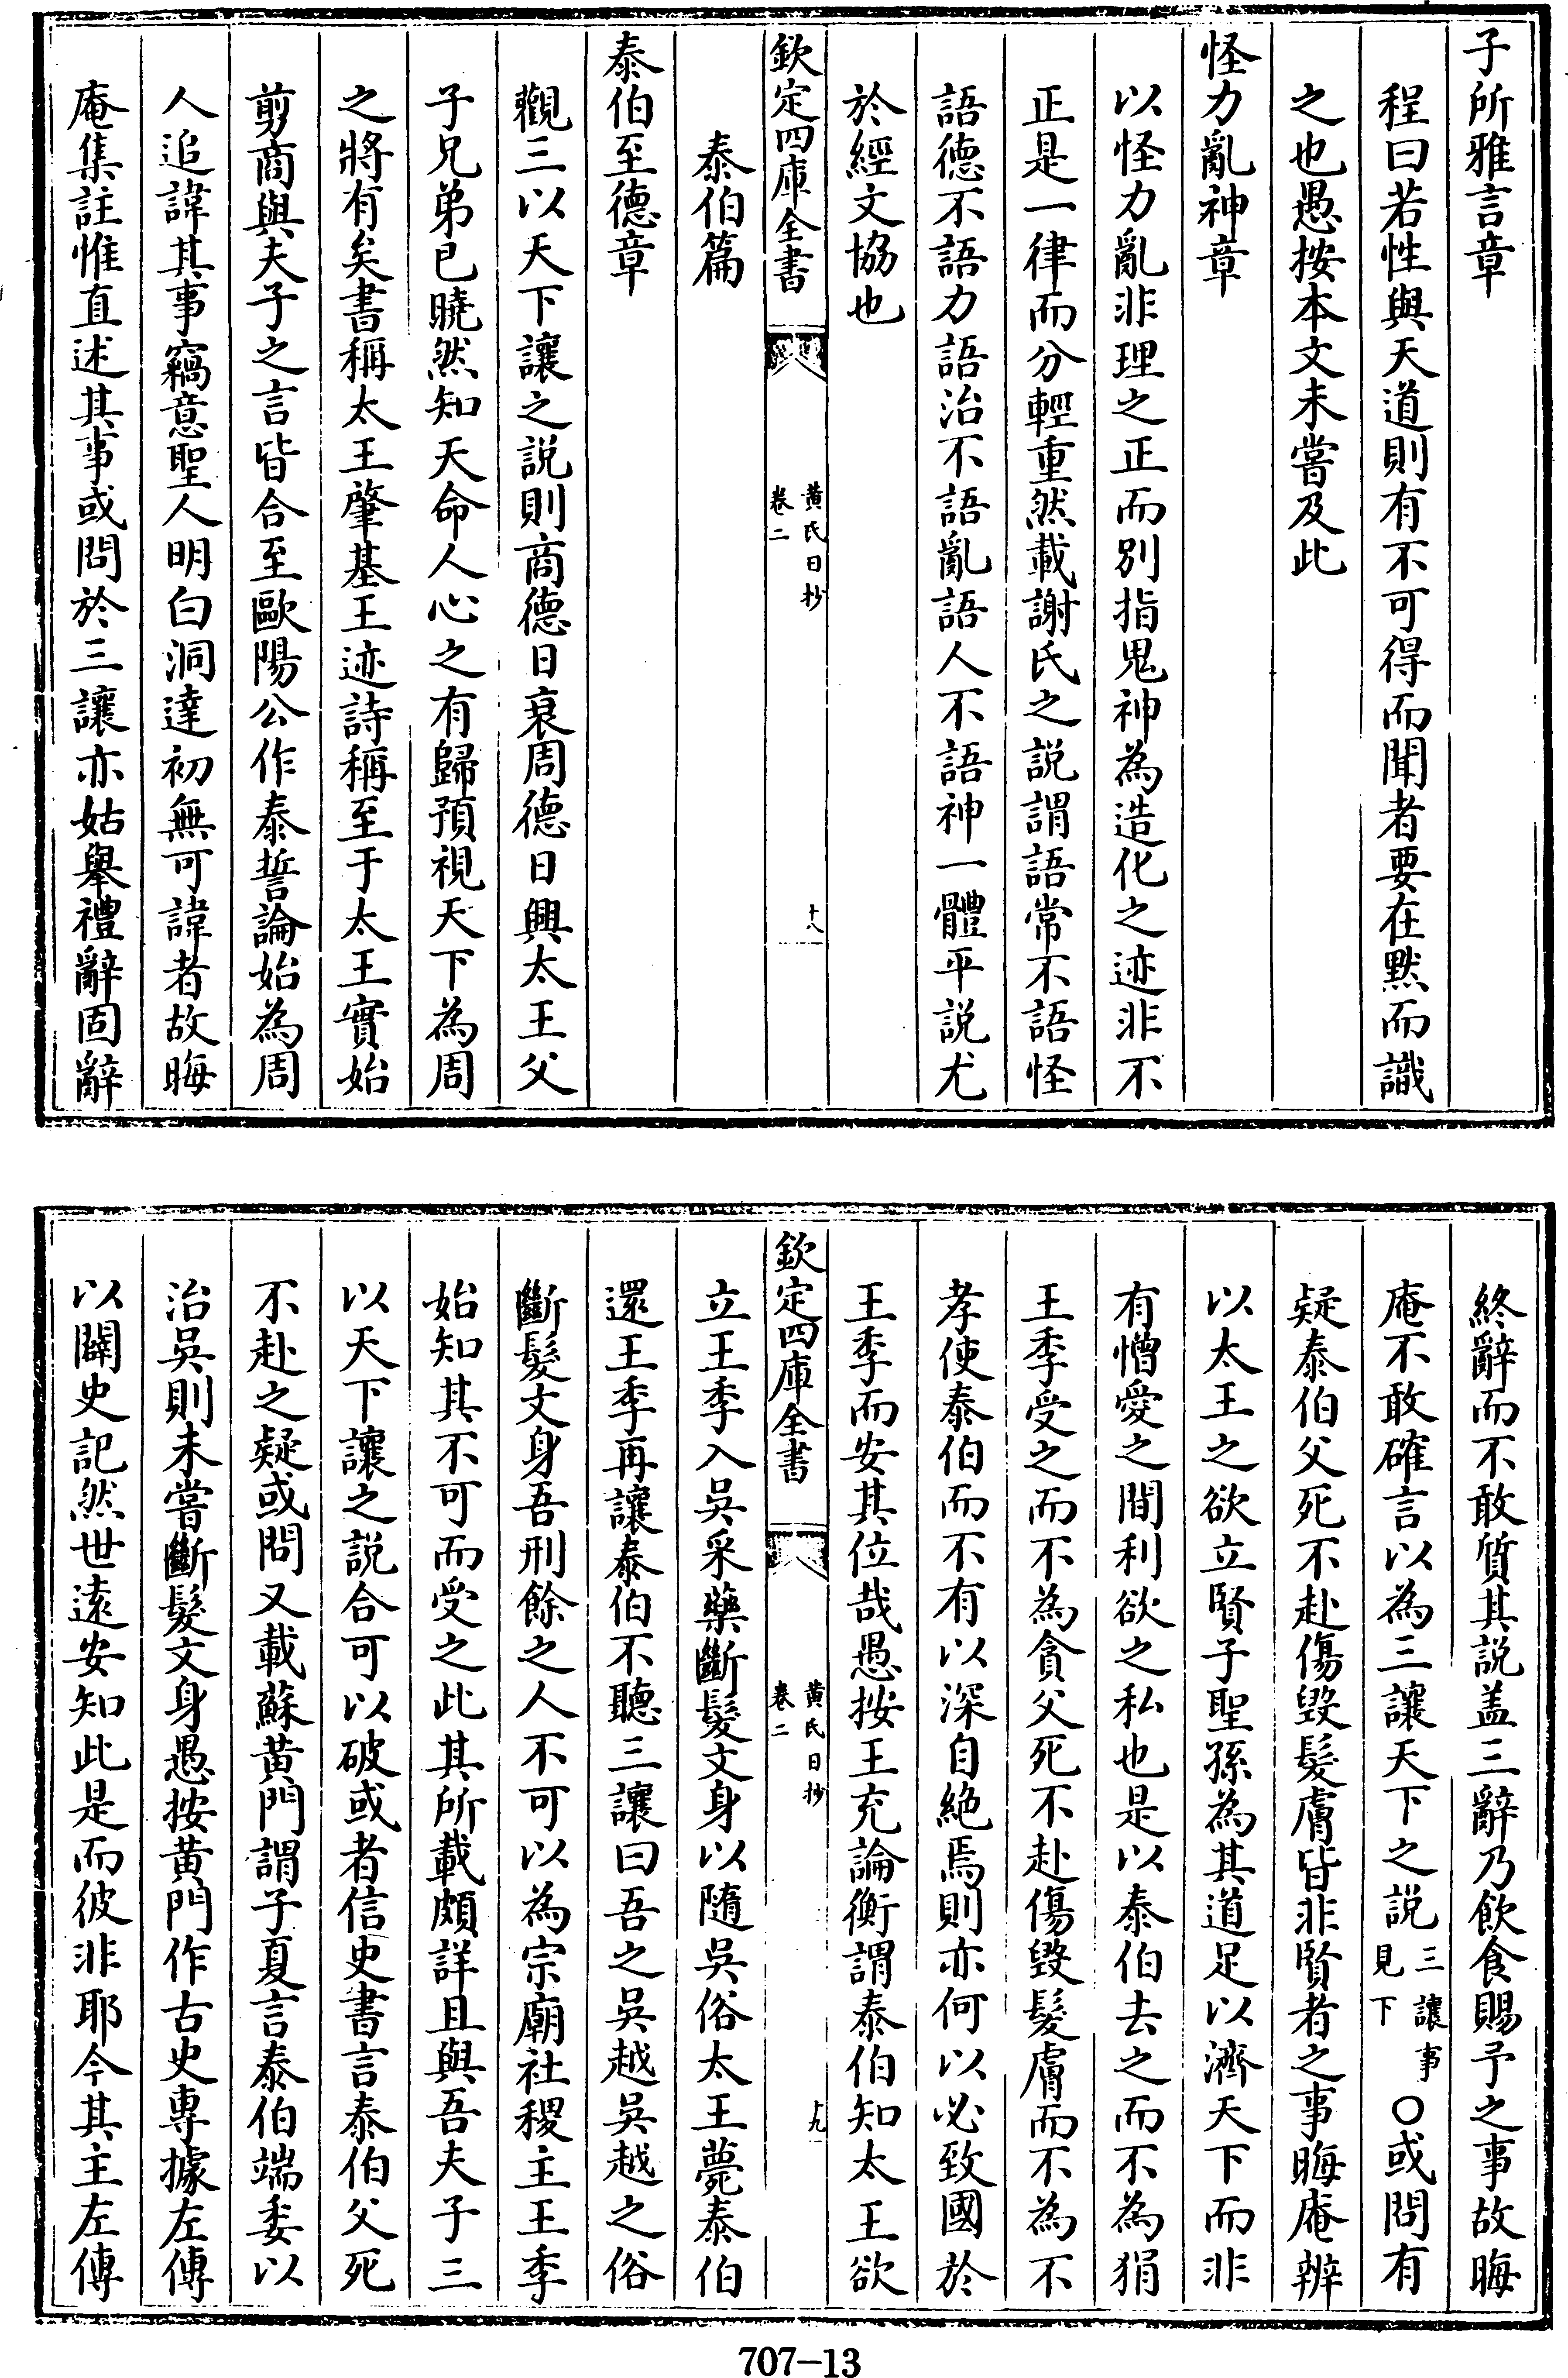 子所雅言章
程曰若性與天道則有不可得而聞者要在黙而識
之也愚按本文未嘗及此
怪力亂神章
以怪力亂非理之正而別指鬼神為造化之迹非不
正是一律而分輕重然載謝氏之説謂語常不語怪
語德不語力語治不語亂語人不語神一體平説尤
於經文協也
欽定四庫全書
黄氏日抄
卷二
十八
泰伯篇
泰伯至德章
觀三以天下讓之説則商德日衰周德日興太王父
子兄弟已曉然知天命人心之有歸預視天下為周
之將有矣書稱太王肇基王迹詩稱至于太王實始
剪商與夫子之言皆合至歐陽公作泰誓論始為周
人追諱其事竊意聖人明白洞達初無可諱者故晦
庵集註惟直述其事或問於三讓亦姑舉禮辭固辭
終辭而不敢質其説盖三辭乃飲食賜予之事故晦
庵不敢確言以為三讓天下之説三讓事見下○或問有
疑泰伯父死不赴傷毀髮膚皆非賢者之事晦庵辨
以太王之欲立賢子聖孫為其道足以濟天下而非
有憎愛之間利欲之私也是以泰伯去之而不為狷
王季受之而不為貪父死不赴傷毀髮膚而不為不
孝使泰伯而不有以深自絶焉則亦何以必致國於
王季而安其位哉愚按王充論衡謂泰伯知太王欲
欽定四庫全書
黄氏日抄
卷二
十九
立王季入吳采藥斷髮文身以隨吳俗太王薨泰伯
還王季再讓泰伯不聽三讓曰吾之吳越吳越之俗
斷髮文身吾刑餘之人不可以為宗廟社稷主王季
始知其不可而受之此其所載頗詳且與吾夫子三
以天下讓之説合可以破或者信史書言泰伯父死
不赴之疑或問又載蘇黄門謂子夏言泰伯端委以
治吳則未嘗斷髮文身愚按黄門作古史專據左傳
以闢史記然世逺安知此是而彼非耶今其主左傳
707-13